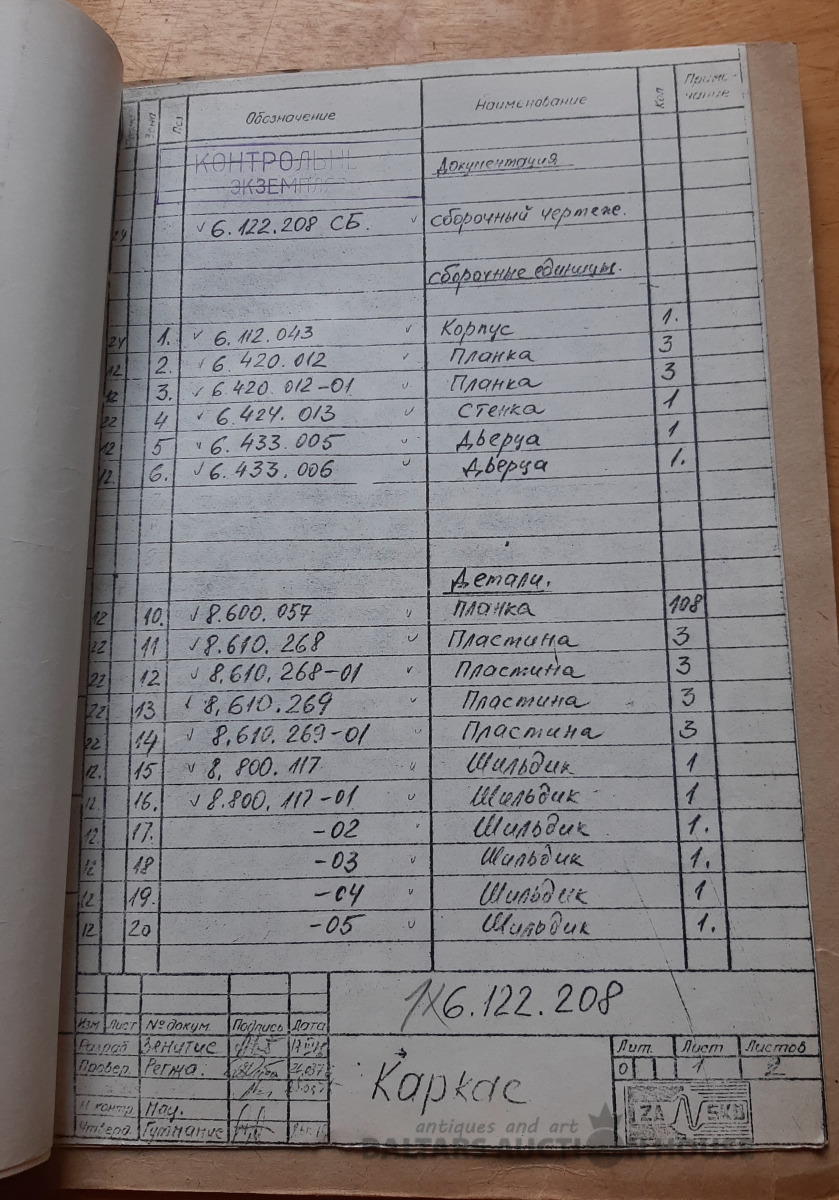 Зона Поз. Обозначение Наименование Кол. Приме-
чание
КОНТРОЛЬН
ЭКЗЕМПЛ
Документация
24 6.122.208 СБ. Сборочный чертеже.
Сборочные единицы.
24 1. 6.112.043 Корпус 1.
12 2. 6.420.012 Планка 3
12 3. 6.420.012-01 Планка 3
22 4 6.424.013 Стенка 1
12 5 6.433.005 Дверца 1
12. 6. 6.433.006 Дверца 1.
Детали.
12 10. 8.600.057 Планка 108
22 11 8.610.268 Пластина 3
22 12 8.610.268-01 Пластина 3
22 13 8.610.269 Пластина 3
22 14 8.610.269-01 Пластина 3
12. 15 8.800.117 Шильдик 1
12. 16. 8.800.117-01 Шильдик 1
12. 17. -02 Шильдик 1.
12 18 -03 Шильдик 1.
12 19. -04 Шильдик 1
12 20 -05 Шильдик 1.
6.122.208
Изм Лист № докум. Подпись Дата
Разраб. Зенитис
Провер. Регжа.
Н. контр. Нау.
Утверд. Гутманис
Каркас
Лит. Лист Листов
0 1 2
ZA SKB
antiques and art
BALTARS AUCTION HOUSE